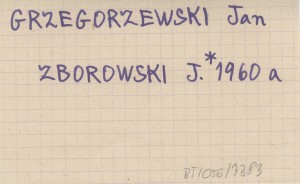 GRZEGORZEWSKI Jan
ZBOROWSKI J.* 1960 a
BT/056/7383